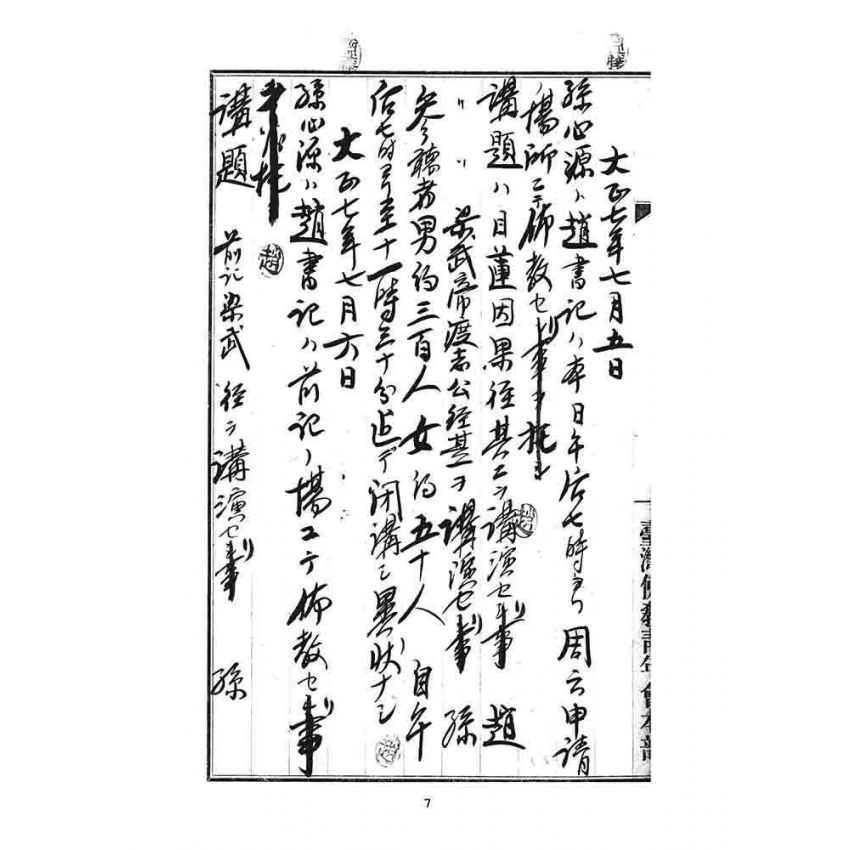 大正七年七月五日
孫心源ハ趙書記ハ本日午后七時ヨリ周ニ申請
ノ場所ニテ佈教セリ
講題ハ目蓮因果經其二ヲ講演セリ 趙
〃 〃 梁武帝渡志公經其一ヲ講演セリ 孫
矣 聽者男約三百人女約五十人自午
后七時ヨリ至十一時三十分迄デ閉講シ異狀ナシ
大正七年七月六日
孫心源ハ趙書記ハ前記ノ場ニテ佈教セリ
講題 前記梁武 經ヲ講演セリ 孫
臺灣佛教青年會本部
7